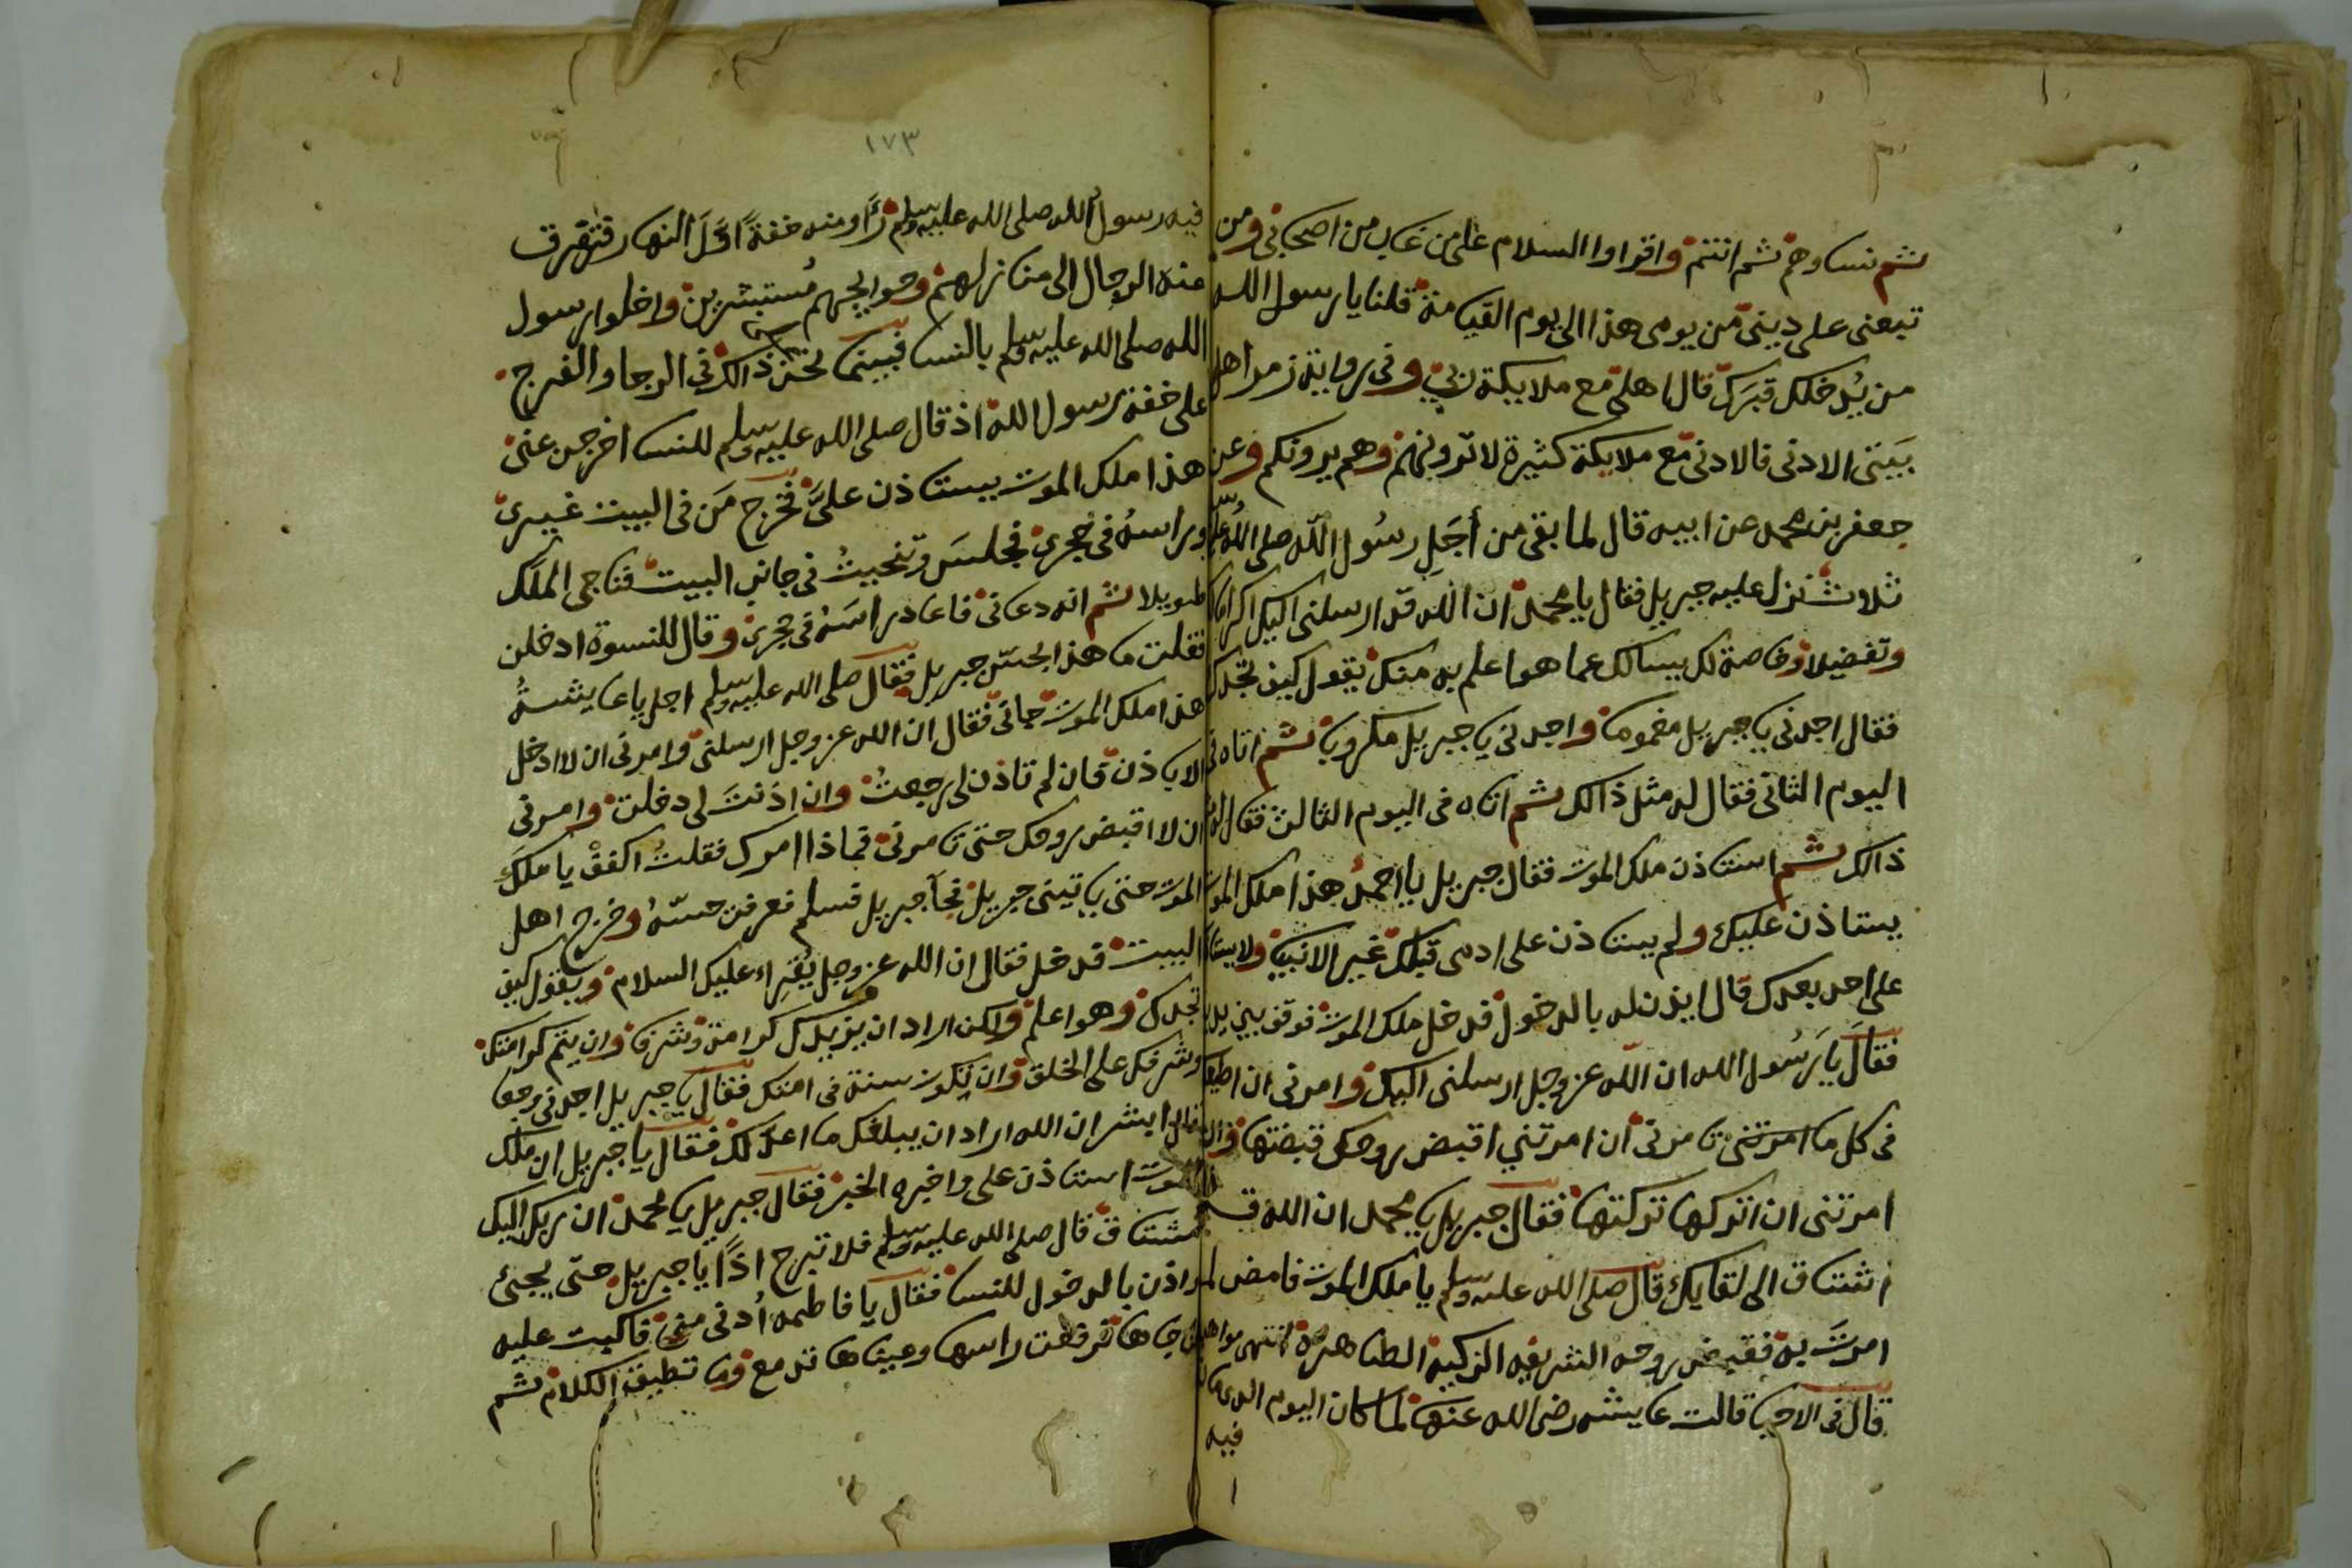 ثم نساوهم ثم انتم واقراوا السلام على من غاب من اصحابي ومن
تبعنى على دينى من يومى هذا الى يوم القيامة قلنا يا رسول الله
من يدخلك قبرك قال اهلى مع ملايكة ربي وفى رواية زمر اهل
بيتى الادنى فالادنى مع ملايكة كثيرة لا ترونهم وهم يرونكم وعن
جعفر بن محمد عن ابيه قال لما بقى من أجل رسول الله صلى الله عليه
ثلاث نزل عليه جبريل فقال يا محمد ان الله قد ارسلنى اليك اكراما
وتفضيلا وخاصة لك يسالك عما هو اعلم به منك يقول كيف تجدك
فقال اجدنى يا جبريل مغموما واجدنى يا جبريل مكروبا ثم اتاه فى
اليوم الثانى فقال له مثل ذالك ثم اتاه فى اليوم الثالث فقال له
ذالك ثم استاذن ملك الموت فقال جبريل يا احمد هذا ملك الموت
يستاذن عليك ولم يستاذن على ادمى قبلك غير الانبيا ولا يستاذن
على احد بعدك قال ايذن له بالدخول فدخل ملك الموت فوقف بين يديه
فقال يا رسول الله ان الله عز وجل ارسلنى اليك وامرنى ان اطيعك
فى كل ما امرتنى تامرنى ان امرتني اقبض روحك قبضتها وان
امرتنى ان اتركها تركتها فقال جبريل يا محمد ان الله قد
اشتاق الى لقايك قال صلى الله عليه وسلم يا ملك الموت فامض لما
امرت به فقبض روحه الشريفه الزكية الطاهرة انتهى مواهب
قال فى الاحيا قالت عايشه رضى الله عنها لما كان اليوم الذى مات
فيه
١٧٣
فيه رسول الله صلى الله عليه وسلم راو منه خفة اول النهار فتفرق
عنه الرجال الى منازلهم وحوايجهم مستبشرين واخلوا رسول
الله صلى الله عليه وسلم بالنسا فبينما نحن ذالك فى الرجا والفرج
على خفة رسول الله اذ قال صلى الله عليه وسلم للنسا اخرجن عنى
هذا ملك الموت يستاذن على فخرج من فى البيت غيرى
وراسه فى حجرى فجلس وتنحيت فى جانب البيت فناجى الملك
طويلا ثم انه دعانى فاعاد راسه فى حجرى وقال للنسوة ادخلن
فقلت ما هذا بحس جبريل فقال صلى الله عليه وسلم اجل يا عايشة
هذا ملك الموت جانى فقال ان الله عز وجل ارسلنى وامرنى ان لا ادخل
الا باذن فان لم تاذن لى رجعت وان اذنت لى دخلت وامرنى
ان لا اقبض روحك حتى تامرنى فماذا امرك فقلت اكفف يا ملك
الموت حتى ياتينى جبريل فجآ جبريل فسلم فعرفت حسه وخرج اهل
البيت فدخل فقال ان الله عز وجل يقراء عليك السلام ويقول كيف
تجدك وهو اعلم ولكن اراد ان يزيدك كرامة وشرفا وان يتم كرامتك
وشرفك على الخلق وان تكون سنة فى امتك فقال يا جبريل اجدنى وجعا
فقال ابشر ان الله اراد ان يبلغك ما اعد لك فقال يا جبريل ان ملك
الموت استاذن على واخبره الخبر فقال جبريل يا محمد ان ربك اليك
مشتاق قال صلى الله عليه وسلم فلا تبرح اذا يا جبريل حتى يجئ
واذن بالدخول للنسا فقال يا فاطمه أدنى منى فاكبت عليه
فناجاها فرفعت راسها وعيناها تدمع وما تطيق الكلام ثم